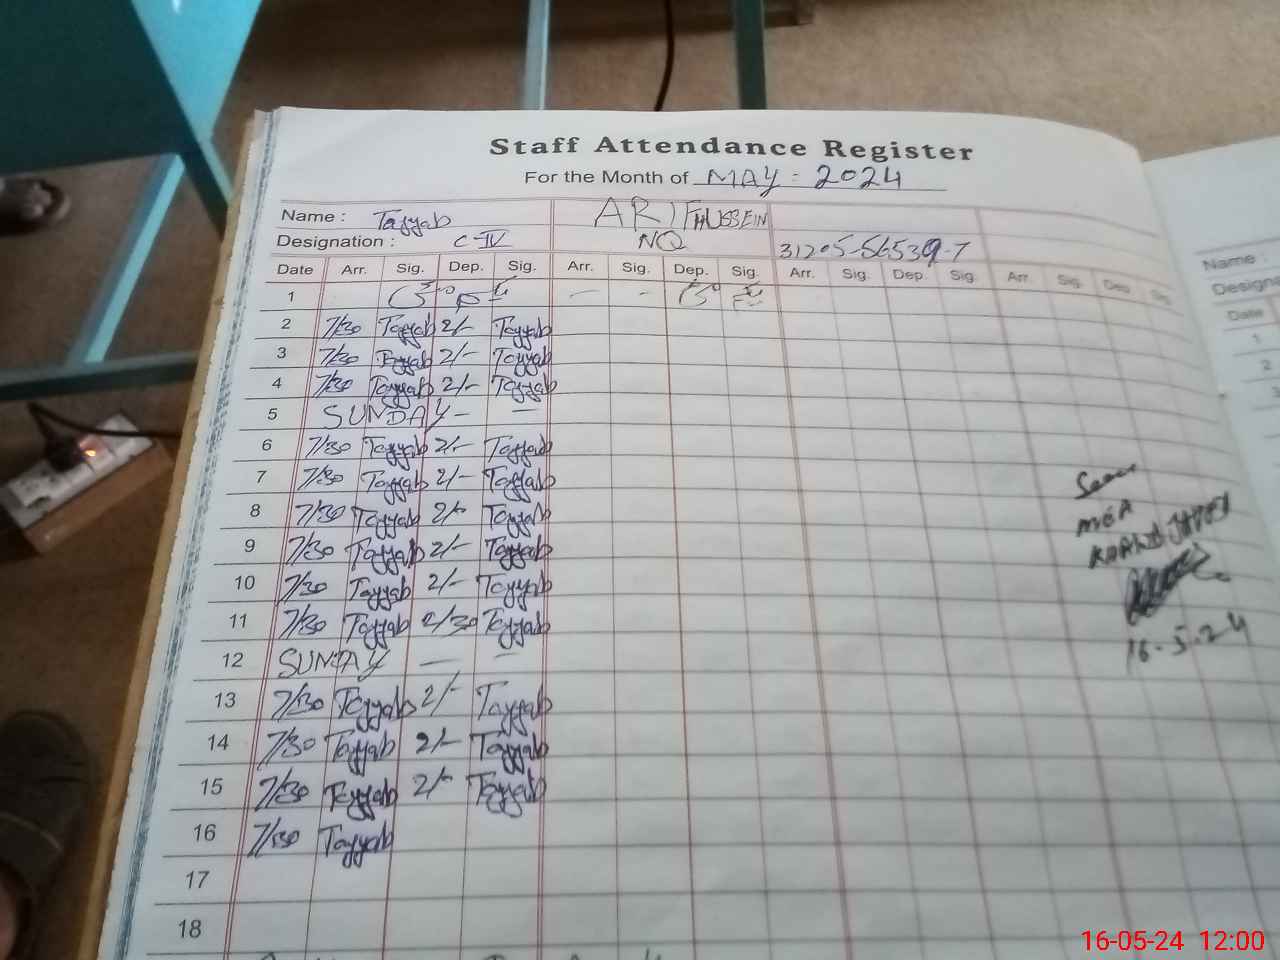 Staff Attendance Register
For the Month of MAY - 2024
Name : Tayyab ARIF HUSSEIN
Designation : C-IV NQ 31205-56539-7
Date Arr. Sig. Dep. Sig. Arr. Sig. Dep. Sig. Arr. Sig. Dep. Sig. Arr. Sig. Dep. Sig.
1 - -
2 7/30 Tayyab 2/- Tayyab
3 7/30 Tayyab 2/- Tayyab
4 7/30 Tayyab 2/- Tayyab
5 SUNDAY - -
6 7/30 Tayyab 2/- Tayyab
7 7/30 Tayyab 2/- Tayyab
8 7/30 Tayyab 2/- Tayyab
9 7/30 Tayyab 2/- Tayyab
10 7/30 Tayyab 2/- Tayyab
11 7/30 Tayyab 2/30 Tayyab
12 SUNDAY - -
13 7/30 Tayyab 2/- Tayyab
14 7/30 Tayyab 2/- Tayyab
15 7/30 Tayyab 2/- Tayyab
16 7/30 Tayyab
17
18
Seen
MEA
16-5-24
Name :
Date
1
2
16-05-24 12:00